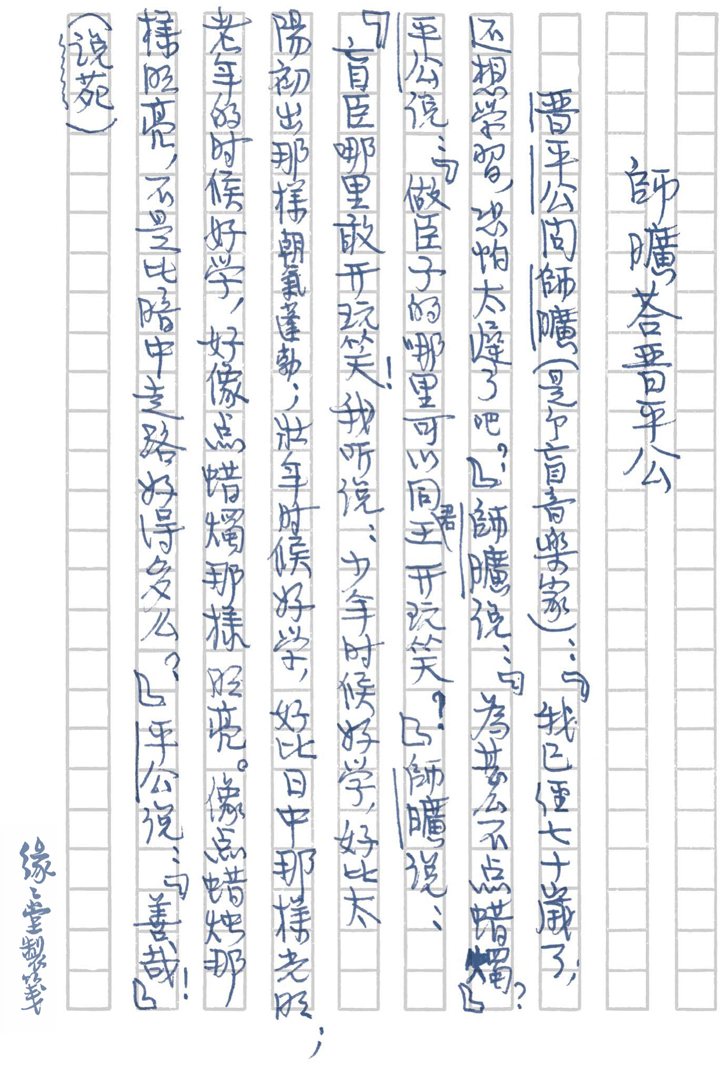 師曠荅晋平公
晋平公问師曠（是个盲音樂家）：「我已経七十歲了，
还想学習，恐怕太遲了吧？」師曠说：「為甚么不点蜡燭？」
平公说：「做臣子的哪里可以同君王开玩笑？」師曠说：
「盲臣哪里敢开玩笑！我听说：少年时候好学，好比太
陽初出那样朝氣蓬勃；壮年时候好学，好比日中那樣光旺；
老年的时候好学，好像点蜡燭那樣旺亮。像点蜡烛那
樣旺亮，不是比暗中走路好得多么？」平公说：「善哉！」
（说苑）
缘缘堂製笺